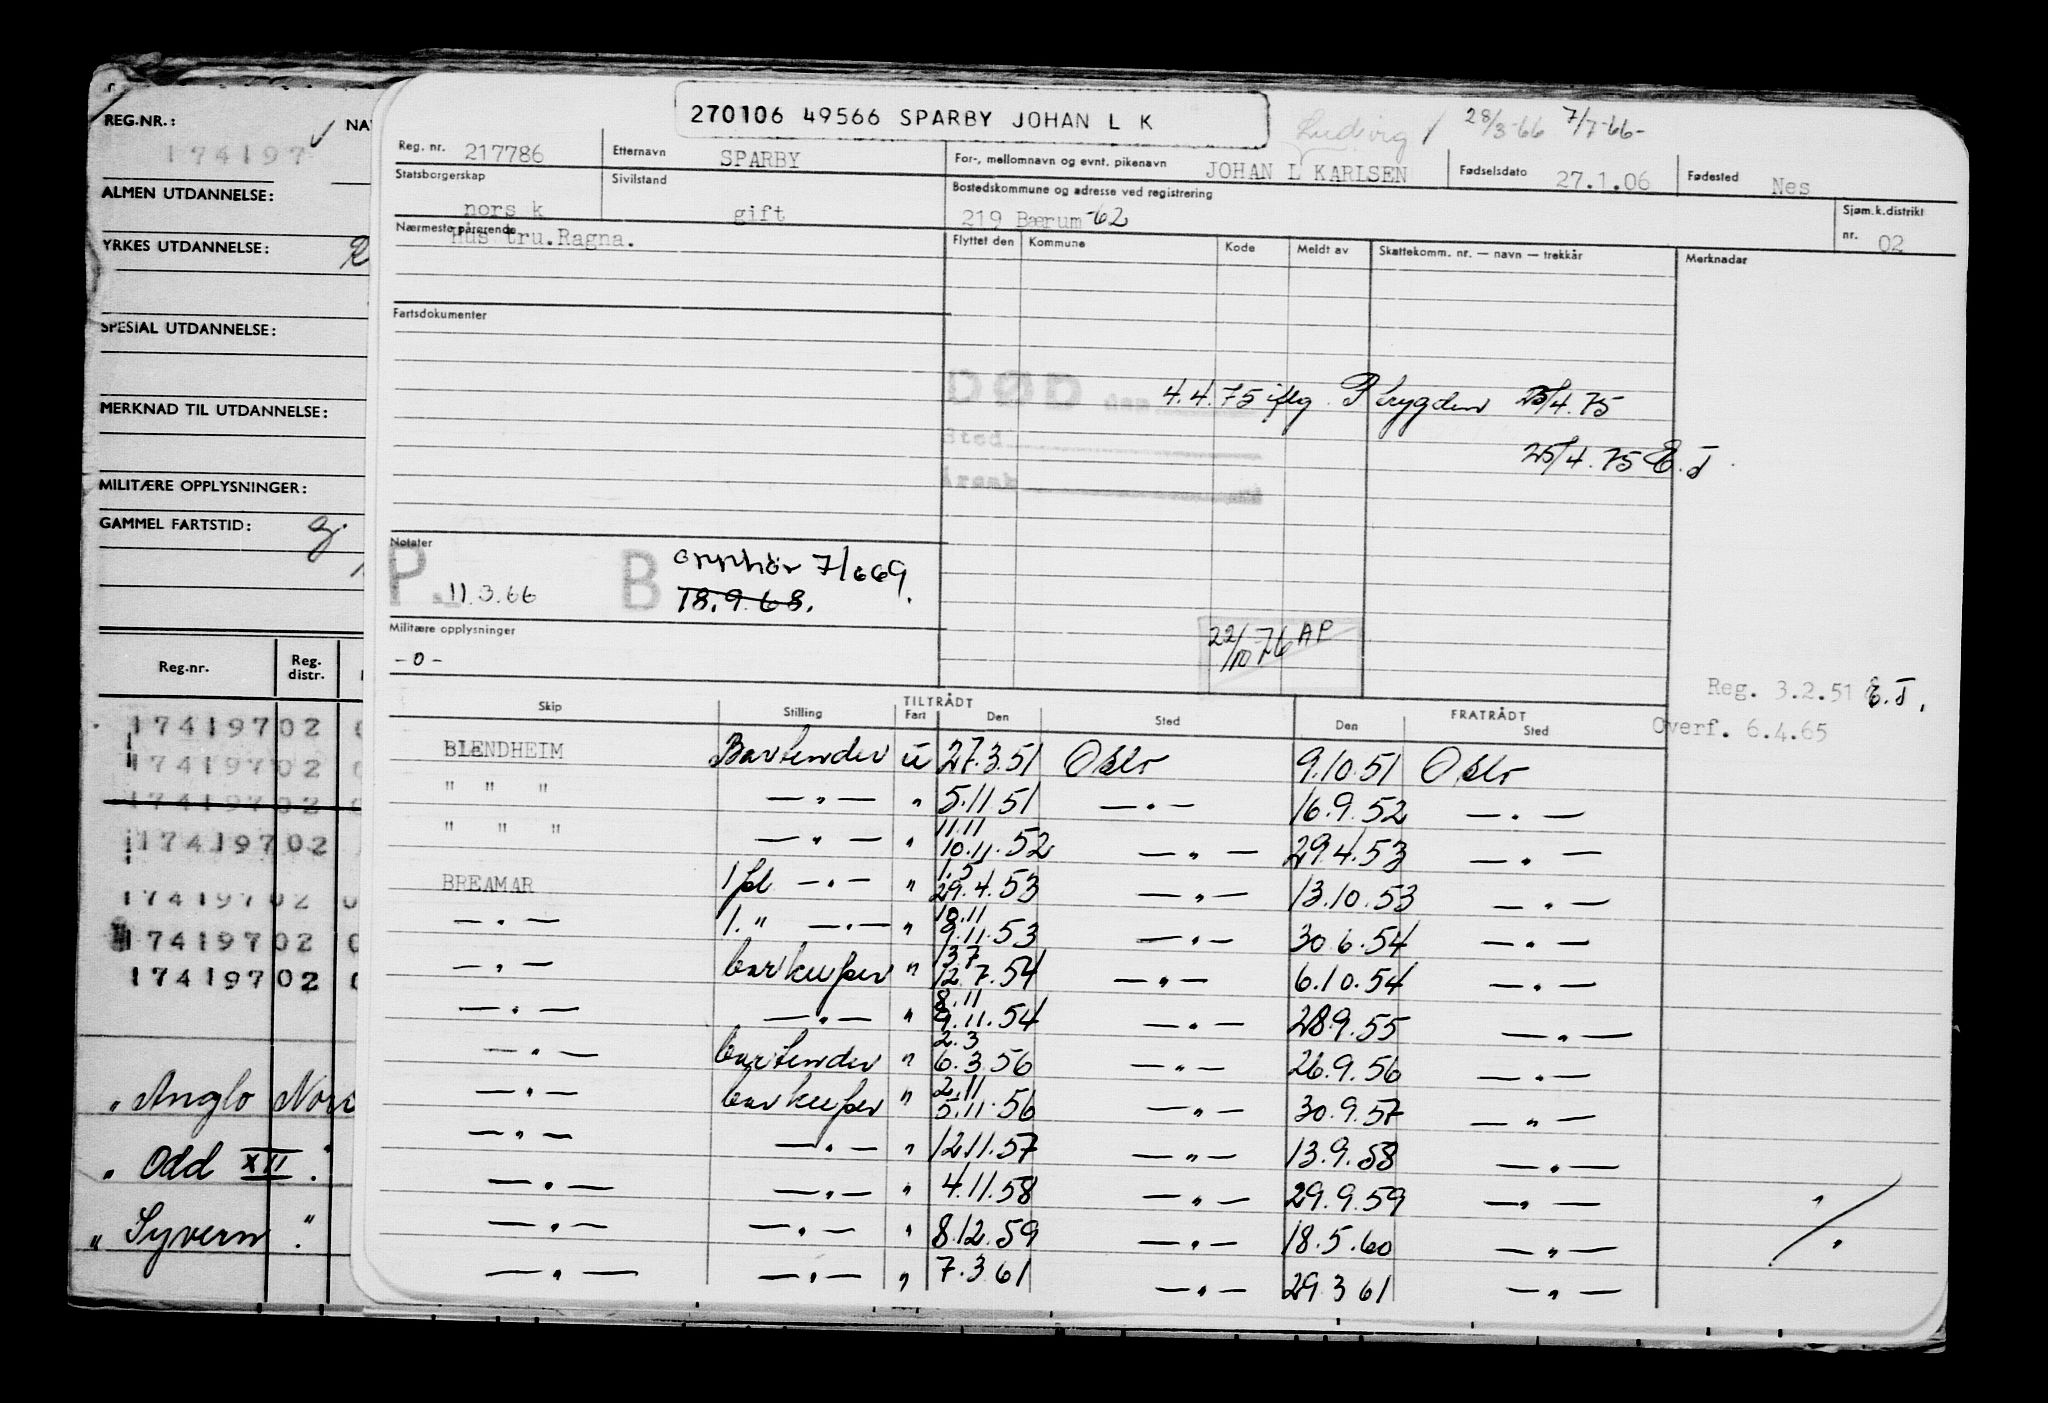 270106 49566 SPARBY JOHAN L K
Ludvig / 28/3-66 7/7-66-
Reg. nr. 217786 Etternavn SPARBY For-, mellomnavn og evnt. pikenavn JOHAN L KARLSEN Fødselsdato 27.1.06 Fødested Nes
Statsborgerskap norsk Sivilstand gift Bostedskommune og adresse ved registrering 219 Bærum -62 Sjøm.k.distrikt nr. 02
Nærmeste pårørende Hustru.Ragna.
Flyttet den Kommune Kode Meldt av Skattekomm. nr. — navn — trekkår Merknader
Fartsdokumenter
DØD den 4.4.75 iflg P trygden 25/4.75
Sted
25/4.75 E.J.
Årsak
Notater
P. 11.3.66 B opphør 7/669.
18.9.68.
Militære opplysninger
-0-
22/10 76 AP
Reg. 3.2.51 E.J.
Overf. 6.4.65
TILTRÅDT FRATRÅDT
Skip Stilling Fart Den Sted Den Sted
BLENDHEIM Bartender u 27.3.51 Oslo 9.10.51 Oslo
" " " — " — " 5.11 51 — " — 16.9.52 — " —
" " " — " — " 11.11 10.11.52 — " — 29.4.53 — " —
BREAMAR 1 pl — " — " 1.5 29.4.53 — " — 13.10.53 — " —
— " — 1. " — " — " 10.11 9.11.53 — " — 30.6.54 — " —
— " — barkeeper " 13.7 12.7.54 — " — 6.10.54 — " —
— " — — " — " 8.11 9.11.54 — " — 28.9.55 — " —
— " — bartender " 2.3 6.3.56 — " — 26.9.56 — " —
— " — barkeeper " 2.11 5.11.56 — " — 30.9.57 — " —
— " — — " — " 12.11.57 — " — 13.9.58 — " —
— " — — " — " 4.11.58 — " — 29.9.59 — " —
— " — — " — " 8.12.59 — " — 18.5.60 — " —
— " — — " — " 7.3 61 — " — 29 3 61 — " —
REG.NR.: NAV
174197
ALMEN UTDANNELSE:
YRKES UTDANNELSE:
SPESIAL UTDANNELSE:
MERKNAD TIL UTDANNELSE:
MILITÆRE OPPLYSNINGER:
GAMMEL FARTSTID:
Reg.nr. Reg. distr.
174197 02 0
174197 02 0
174197 02
174197 02
174197 02 0
174197 02 0
174197 02 0
" Anglo Nor
" Odd XII "
" Syvern "